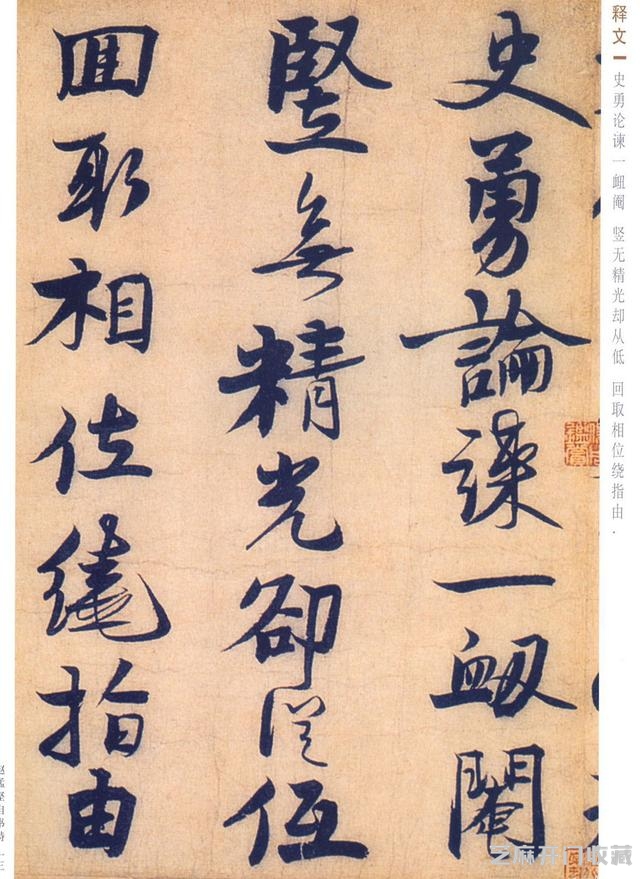 释文
史勇论谏一衄阉 竖无精光却从低 回取相位绕指由 ·
史勇論諫一衂閹
竪無精光卻從低
囬取相位繞指由
赵孟坚自书诗
芝麻开门收藏